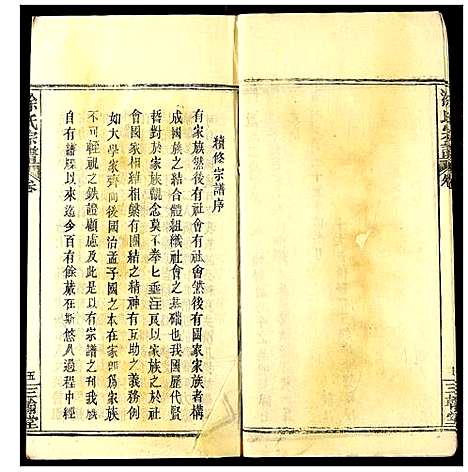 續修宗譜序
有家族然後有社會有社會然後有國家家族者構
成國族之結合體組織社會之基礎也我國歷代賢
哲對於家族觀念莫不拳匕垂注良以家族之於社
會國家相維相繫有團結之精神有互助之義務例
如大學家齊而後國治孟子國之本在家即為家族
不可輕視之鉄證顧慮及此是以有宗譜之刊我族
自有譜牒以來迄今百有餘歲在斯悠八過程中經
涂氏宗譜
卷
五
三翰堂
涂氏宗譜
卷
三翰堂